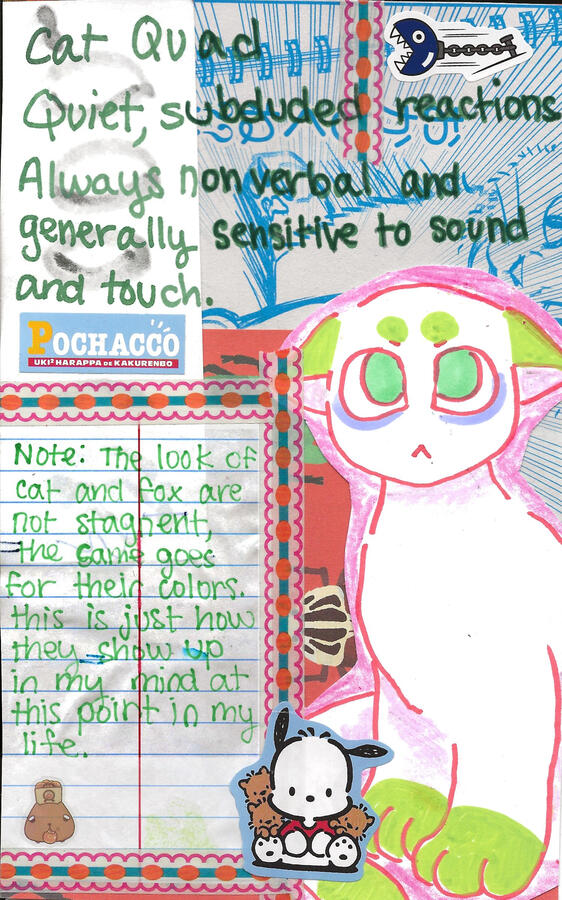 Cat Quad
Quiet, subduded reactions
Always nonverbal and
generally sensitive to sound
and touch.
POCHACCO
UKI² HARAPPA DE KAKURENBO
Note: The look of
cat and fox are
not stagnent,
the same goes
for their colors.
this is just how
they show up
in my mind at
this point in my
life.